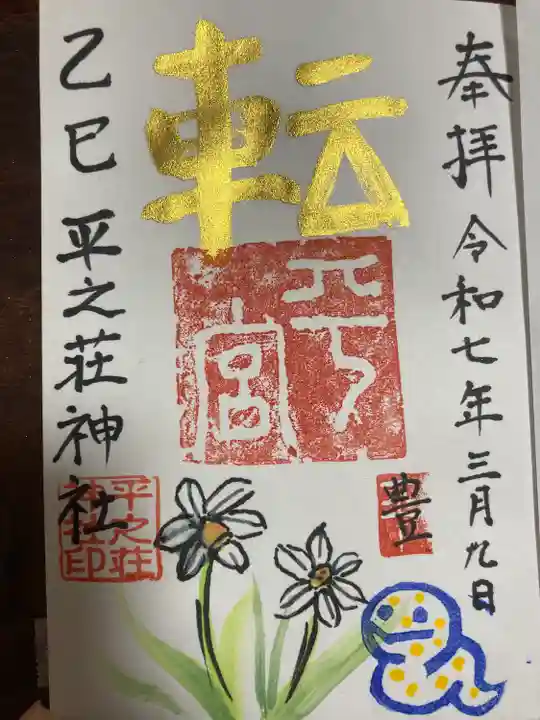 奉拝 令和七年三月九日
転
宮
豊
乙巳 平之荘神社
平之荘
神社印